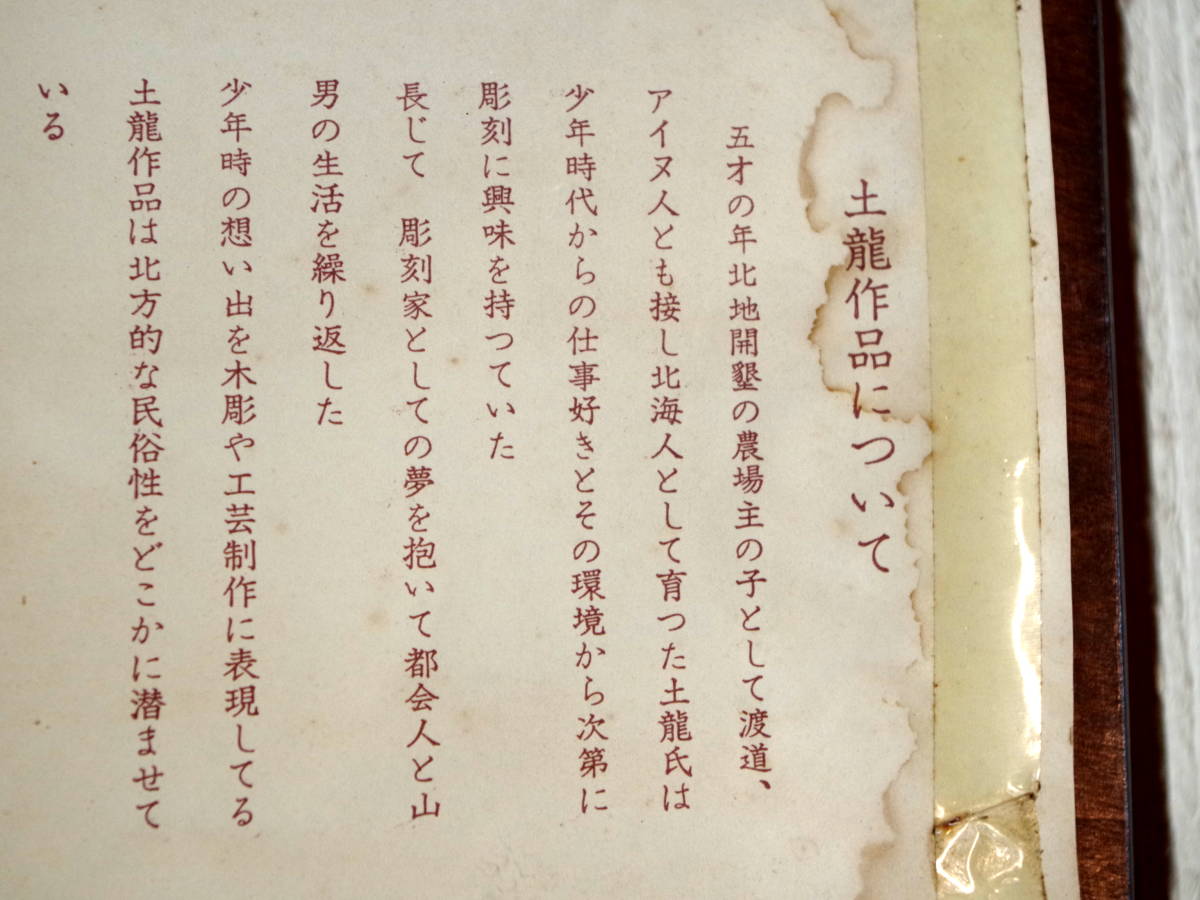 土龍作品について
五才の年北地開墾の農場主の子として渡道、
アイヌ人とも接し北海人として育つた土龍氏は
少年時代からの仕事好きとその環境から次第に
彫刻に興味を持つていた
長じて　彫刻家としての夢を抱いて都会人と山
男の生活を繰り返した
少年時の想い出を木彫や工芸制作に表現してる
土龍作品は北方的な民俗性をどこかに潜ませて
いる